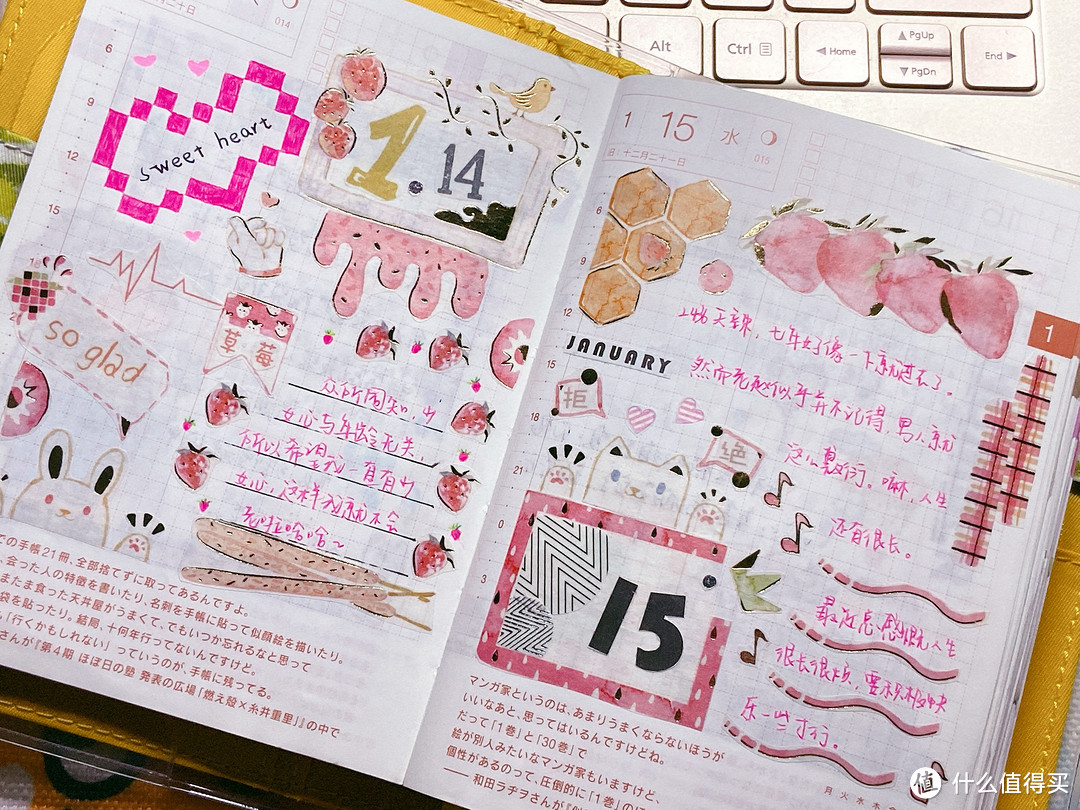 二十日
014
6
9
12
15
sweet heart
1.14
so glad
草莓
众所周知，少
女心与年龄无关，
所以希望我一直有少
女心，这样我就不会
老啦哈哈～
での手帳21冊、全部捨てずに取ってあるんですよ。
、会った人の特徴を書いたり、名刺を手帳に貼って似顔絵を描いたり。
またま食った天丼屋がうまくて、でもいつか忘れるなと思って
袋を貼ったり。結局、十何年行ってないんですけど。
「行くかもしれない」っていうのが、手帳に残ってる。
さんが『第4期 ほぼ日の塾 発表の広場「燃え殻×糸井重里」』の中で
1 15 水
015
十二月二十一日
6
9
12
15
18
21
0
3
1
JANUARY
拒
绝
七年好像一下就过去了。
然而
似乎并不记得
男人就
这么敷衍。嘛，人生
还有很长。
15
最近总感慨人生
很长很长，要积极快
乐一些才行。
マンガ家というのは、あまりうまくならないほうが
いいなあと、思ってはいるんですけどね。
だって「1巻」と「30巻」で
絵が別人みたいなマンガ家もいますけど、
個性があるのって、圧倒的に「1巻」のほ
—— 和田ラヂヲさんが
月 火 水
Alt
Ctrl
Home
PgUp
PgDn
End
值 什么值得买